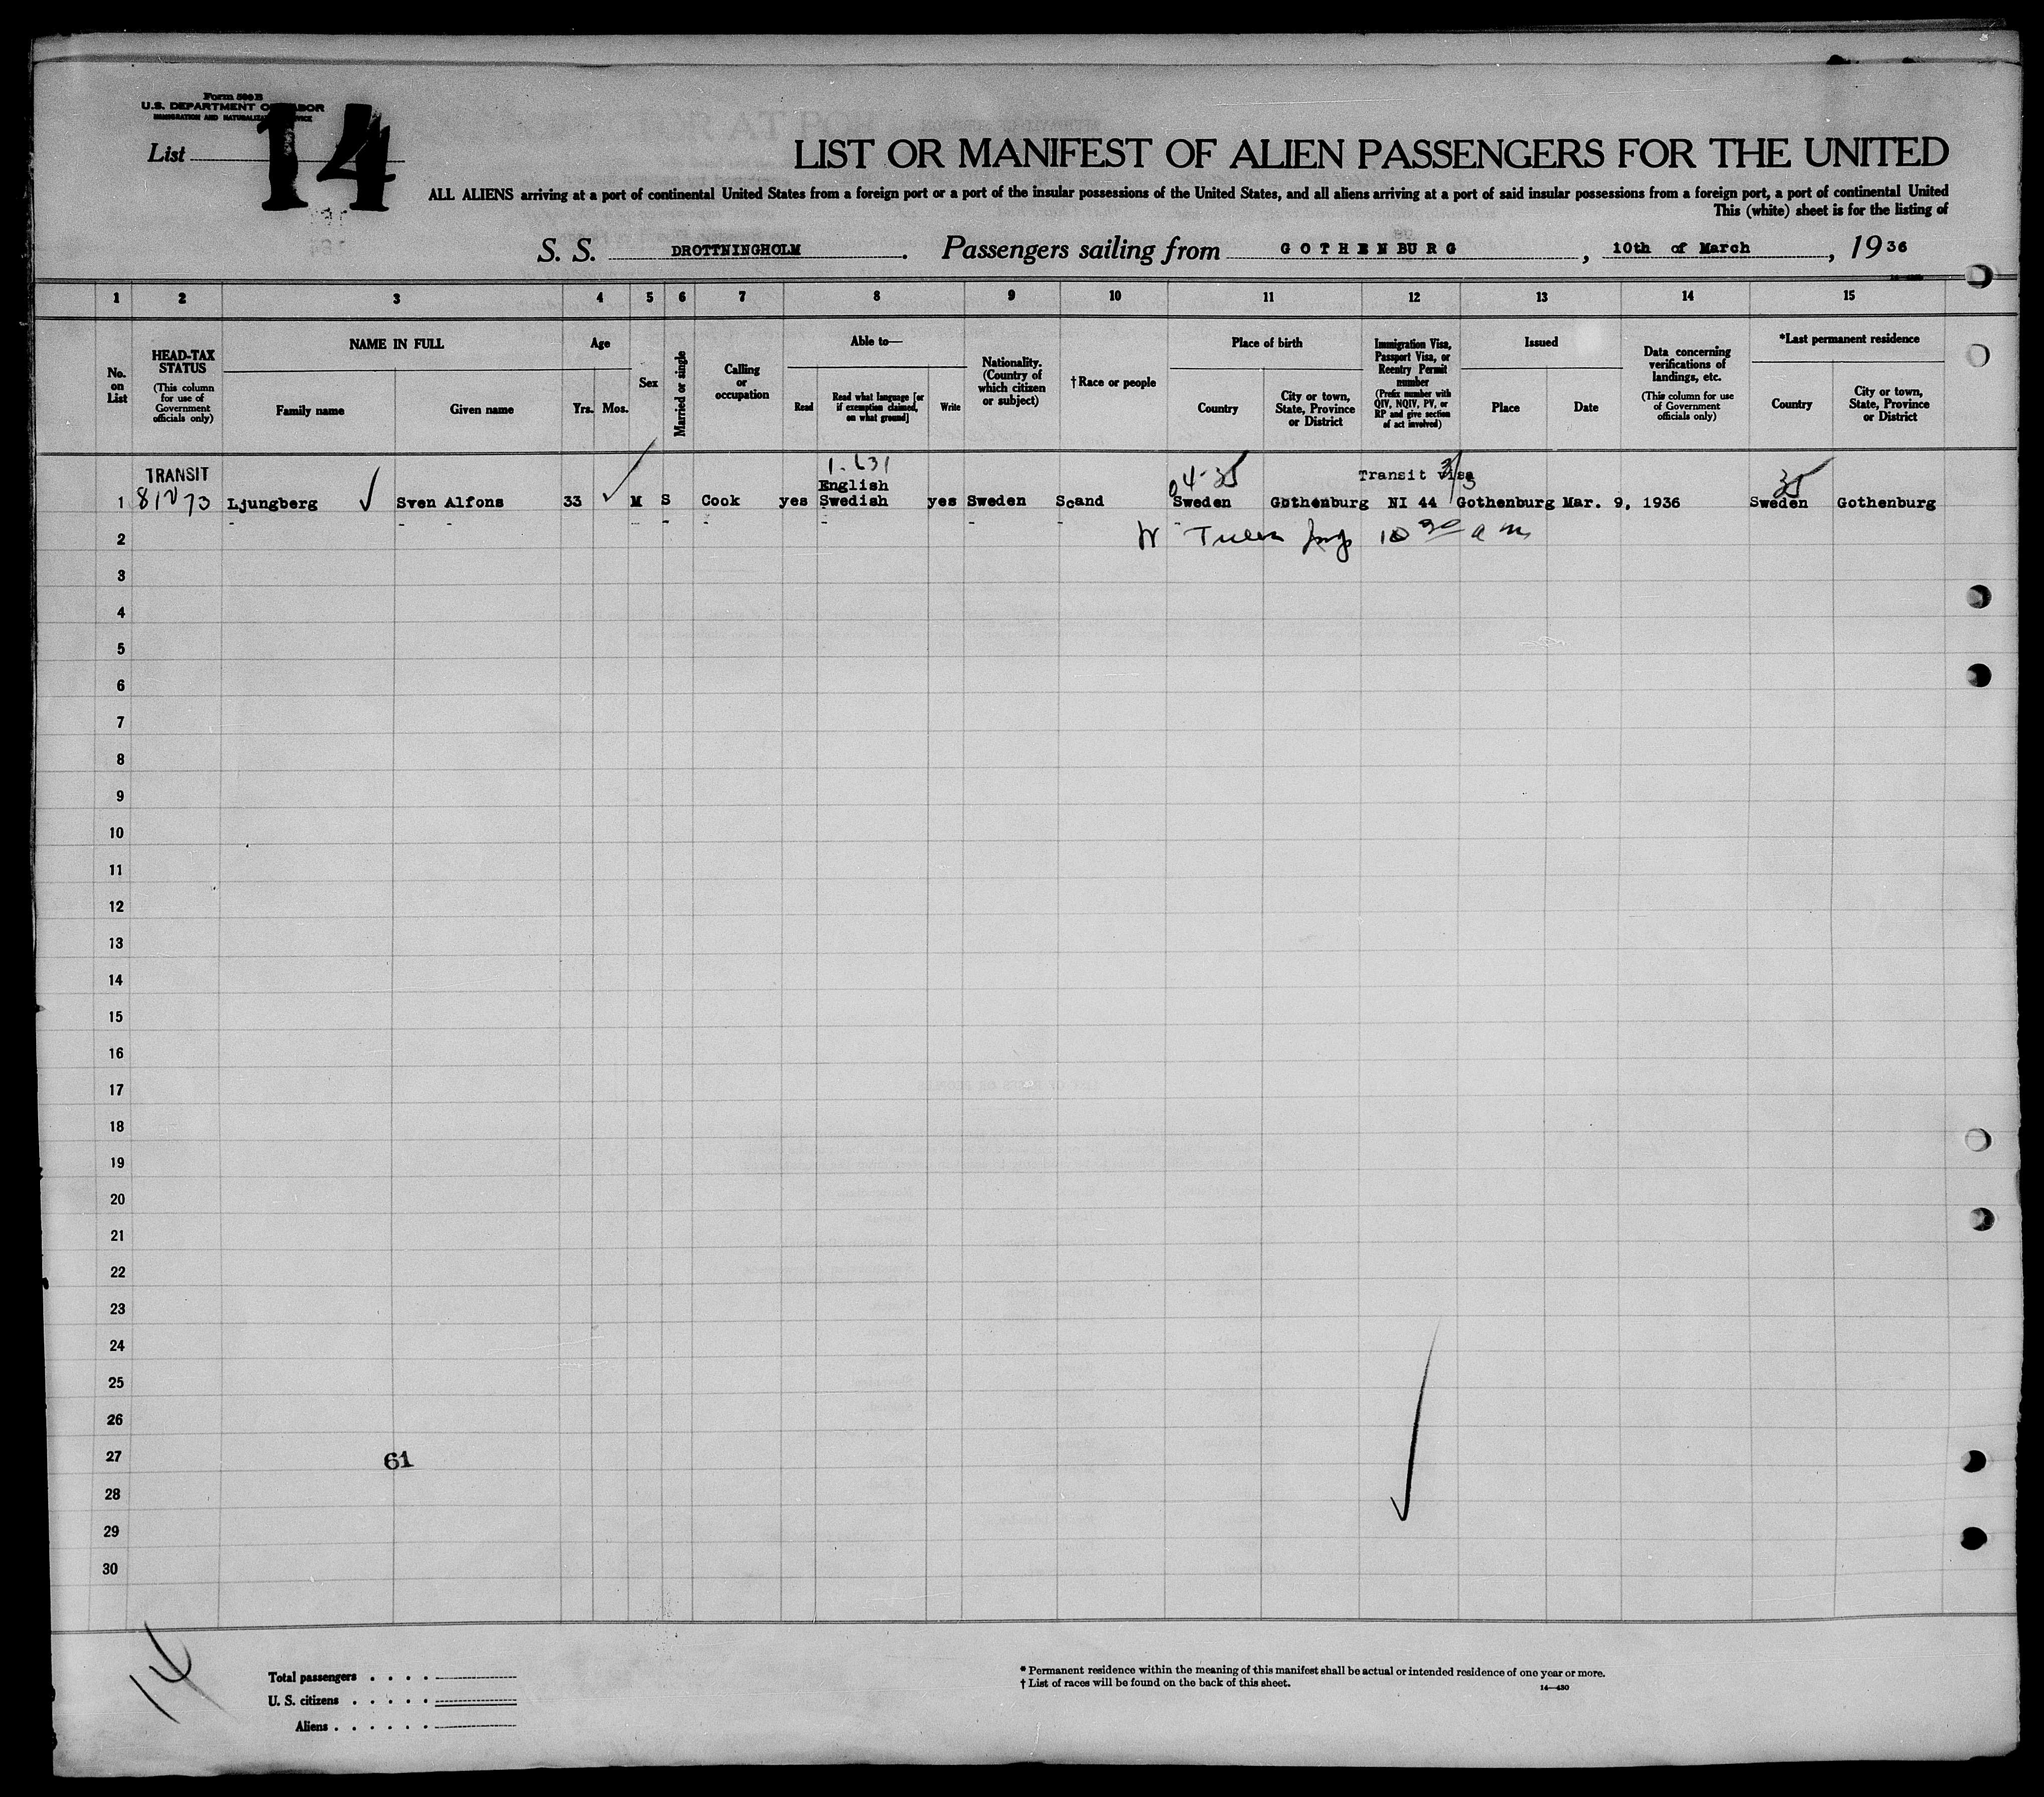 Form 500 B
U.S. DEPARTMENT OF LABOR
IMMIGRATION AND NATURALIZATION SERVICE
List 14
LIST OR MANIFEST OF ALIEN PASSENGERS FOR THE UNITED
ALL ALIENS arriving at a port of continental United States from a foreign port or a port of the insular possessions of the United States, and all aliens arriving at a port of said insular possessions from a foreign port, a port of continental United
This (white) sheet is for the listing of
S. S. DROTTNINGHOLM. Passengers sailing from GOTHENBURG, 10th of March, 1936
1 2 3 4 5 6 7 8 9 10 11 12 13 14 15
No. on List
HEAD-TAX STATUS
(This column for use of Government officials only)
NAME IN FULL
Family name
Given name
Age
Yrs.
Mos.
Sex
Married or single
Calling or occupation
Able to—
Read
Read what language [or if exemption claimed, on what ground]
Write
Nationality. (Country of which citizen or subject)
†Race or people
Place of birth
Country
City or town, State, Province or District
Immigration Visa, Passport Visa, or Reentry Permit number
(Prefix number with QIV, NQIV, PV, or RP and give section of act involved)
Issued
Place
Date
Data concerning verifications of landings, etc.
(This column for use of Government officials only)
*Last permanent residence
Country
City or town, State, Province or District
TRANSIT
English
Transit Visa
1 Ljungberg Sven Alfons 33 M S Cook yes Swedish yes Sweden Scand Sweden Gothenburg NI 44 Gothenburg Mar. 9, 1936 Sweden Gothenburg
2
3
4
5
6
7
8
9
10
11
12
13
14
15
16
17
18
19
20
21
22
23
24
25
26
27
61
28
29
30
14
Total passengers
U. S. citizens
Aliens
* Permanent residence within the meaning of this manifest shall be actual or intended residence of one year or more.
† List of races will be found on the back of this sheet.
14—430